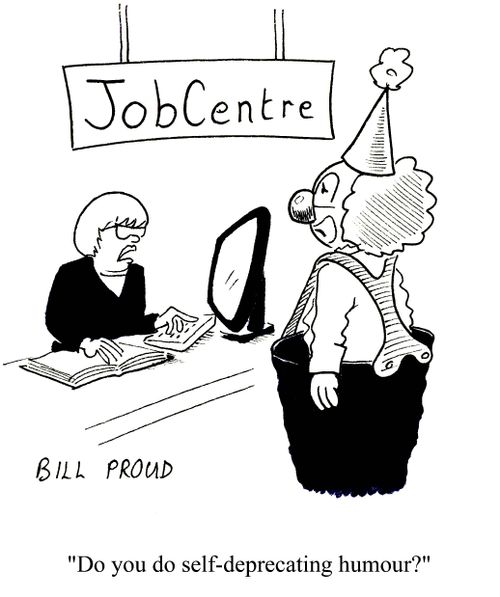 JobCentre
BILL PROUD
"Do you do self-deprecating humour?"